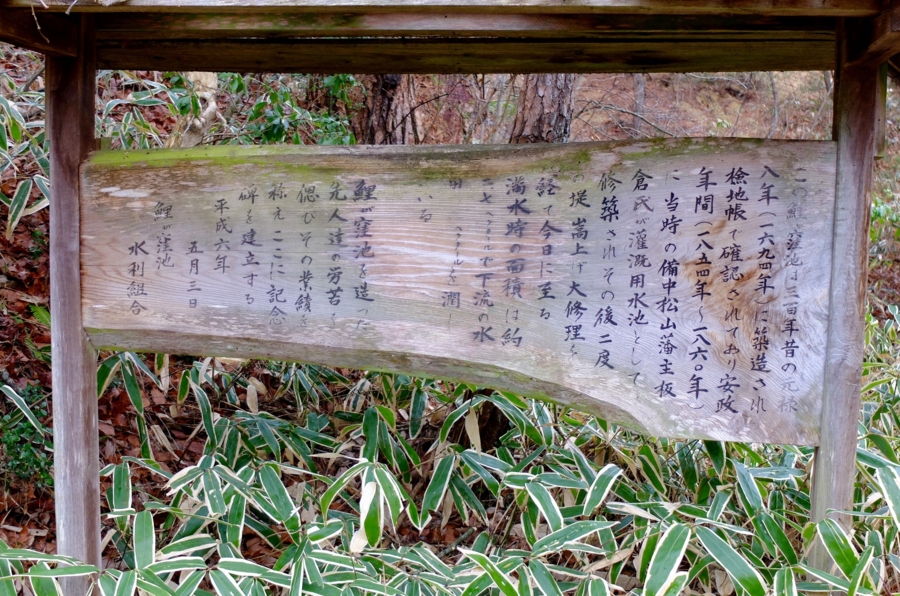 鯉ヶ窪池は三百年昔の元禄
八年(一六九四年)に築造され
検地帳で確認されており安政
年間(一八五四年〜一八六〇年)
に当時の備中松山藩主板
倉氏が灌漑用水池として
修築されその後二度
の堤嵩上げ大修理を
経て今日に至る
満水時の面積は約
で下流の水
田 を潤し
いる
鯉が窪池を造った
先人達の労苦を
偲びその業績を
称えここに記念
碑を建立する
平成六年
五月三日
鯉が窪池
水利組合